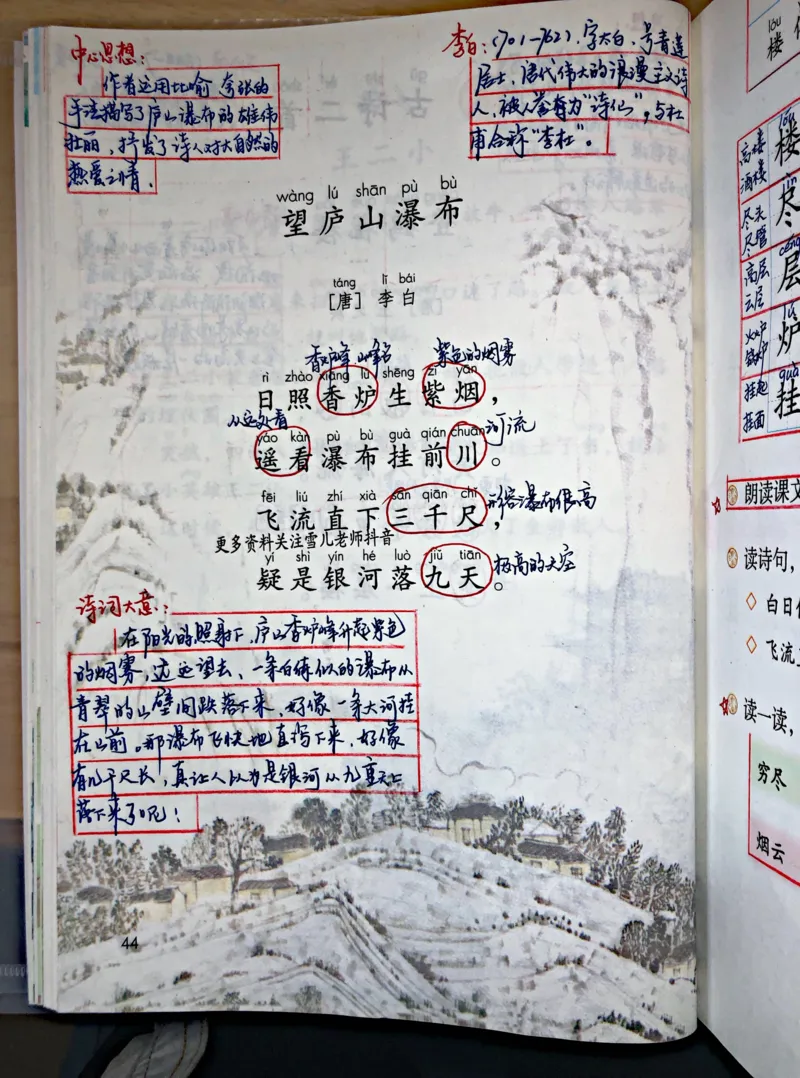 中心思想：
作者运用比喻、夸张的
手法描写了庐山瀑布的雄伟
壮丽，抒发了诗人对大自然的
热爱之情。
李白：(701-762)，字太白，号青莲
居士，唐代伟大的浪漫主义诗
人，被人誉为"诗仙"，与杜
甫合称"李杜"。
wàng lú shān pù bù
望庐山瀑布
táng lǐ bái
[唐] 李白
紫色的烟雾
rì zhào xiāng lú shēng zǐ yān
日照香炉生紫烟，
从远处看
河流
yáo kàn pù bù guà qián chuān
遥看瀑布挂前川。
fēi liú zhí xià sān qiān chǐ
飞流直下三千尺，
形容瀑布很高
更多资料关注雪儿老师抖音
yí shì yín hé luò jiǔ tiān
疑是银河落九天。
极高的天空
诗词大意：
在阳光的照射下，庐山香炉峰升起紫色
的烟雾，远远望去，一条白练似的瀑布从
青翠的山壁间跌落下来，好像一条大河挂
在山前。那瀑布飞快地直泻下来，好像
有几千尺长，真让人以为是银河从九重天上
落下来了呢！
44
lóu
楼
高楼
酒楼
lóu
楼
尽头
尽管
尽
高层
云层
céng
层
火炉
lú
炉
挂起
挂面
guà
挂
朗读课文
读诗句，
白日
飞流
读一读，
穷尽
烟云